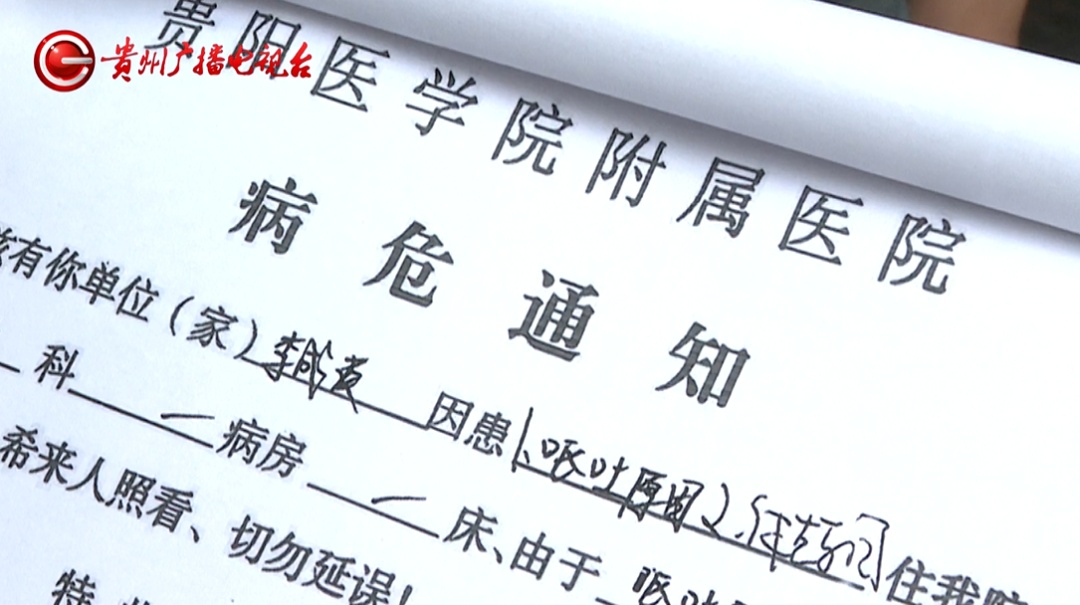 贵州广播电视台
贵阳医学院附属医院
病危通知
兹有你单位(家) 因患1、呕吐原因2、 住我院
科 一 病房 一 床、由于 呕吐
希来人照看、切勿延误!
特